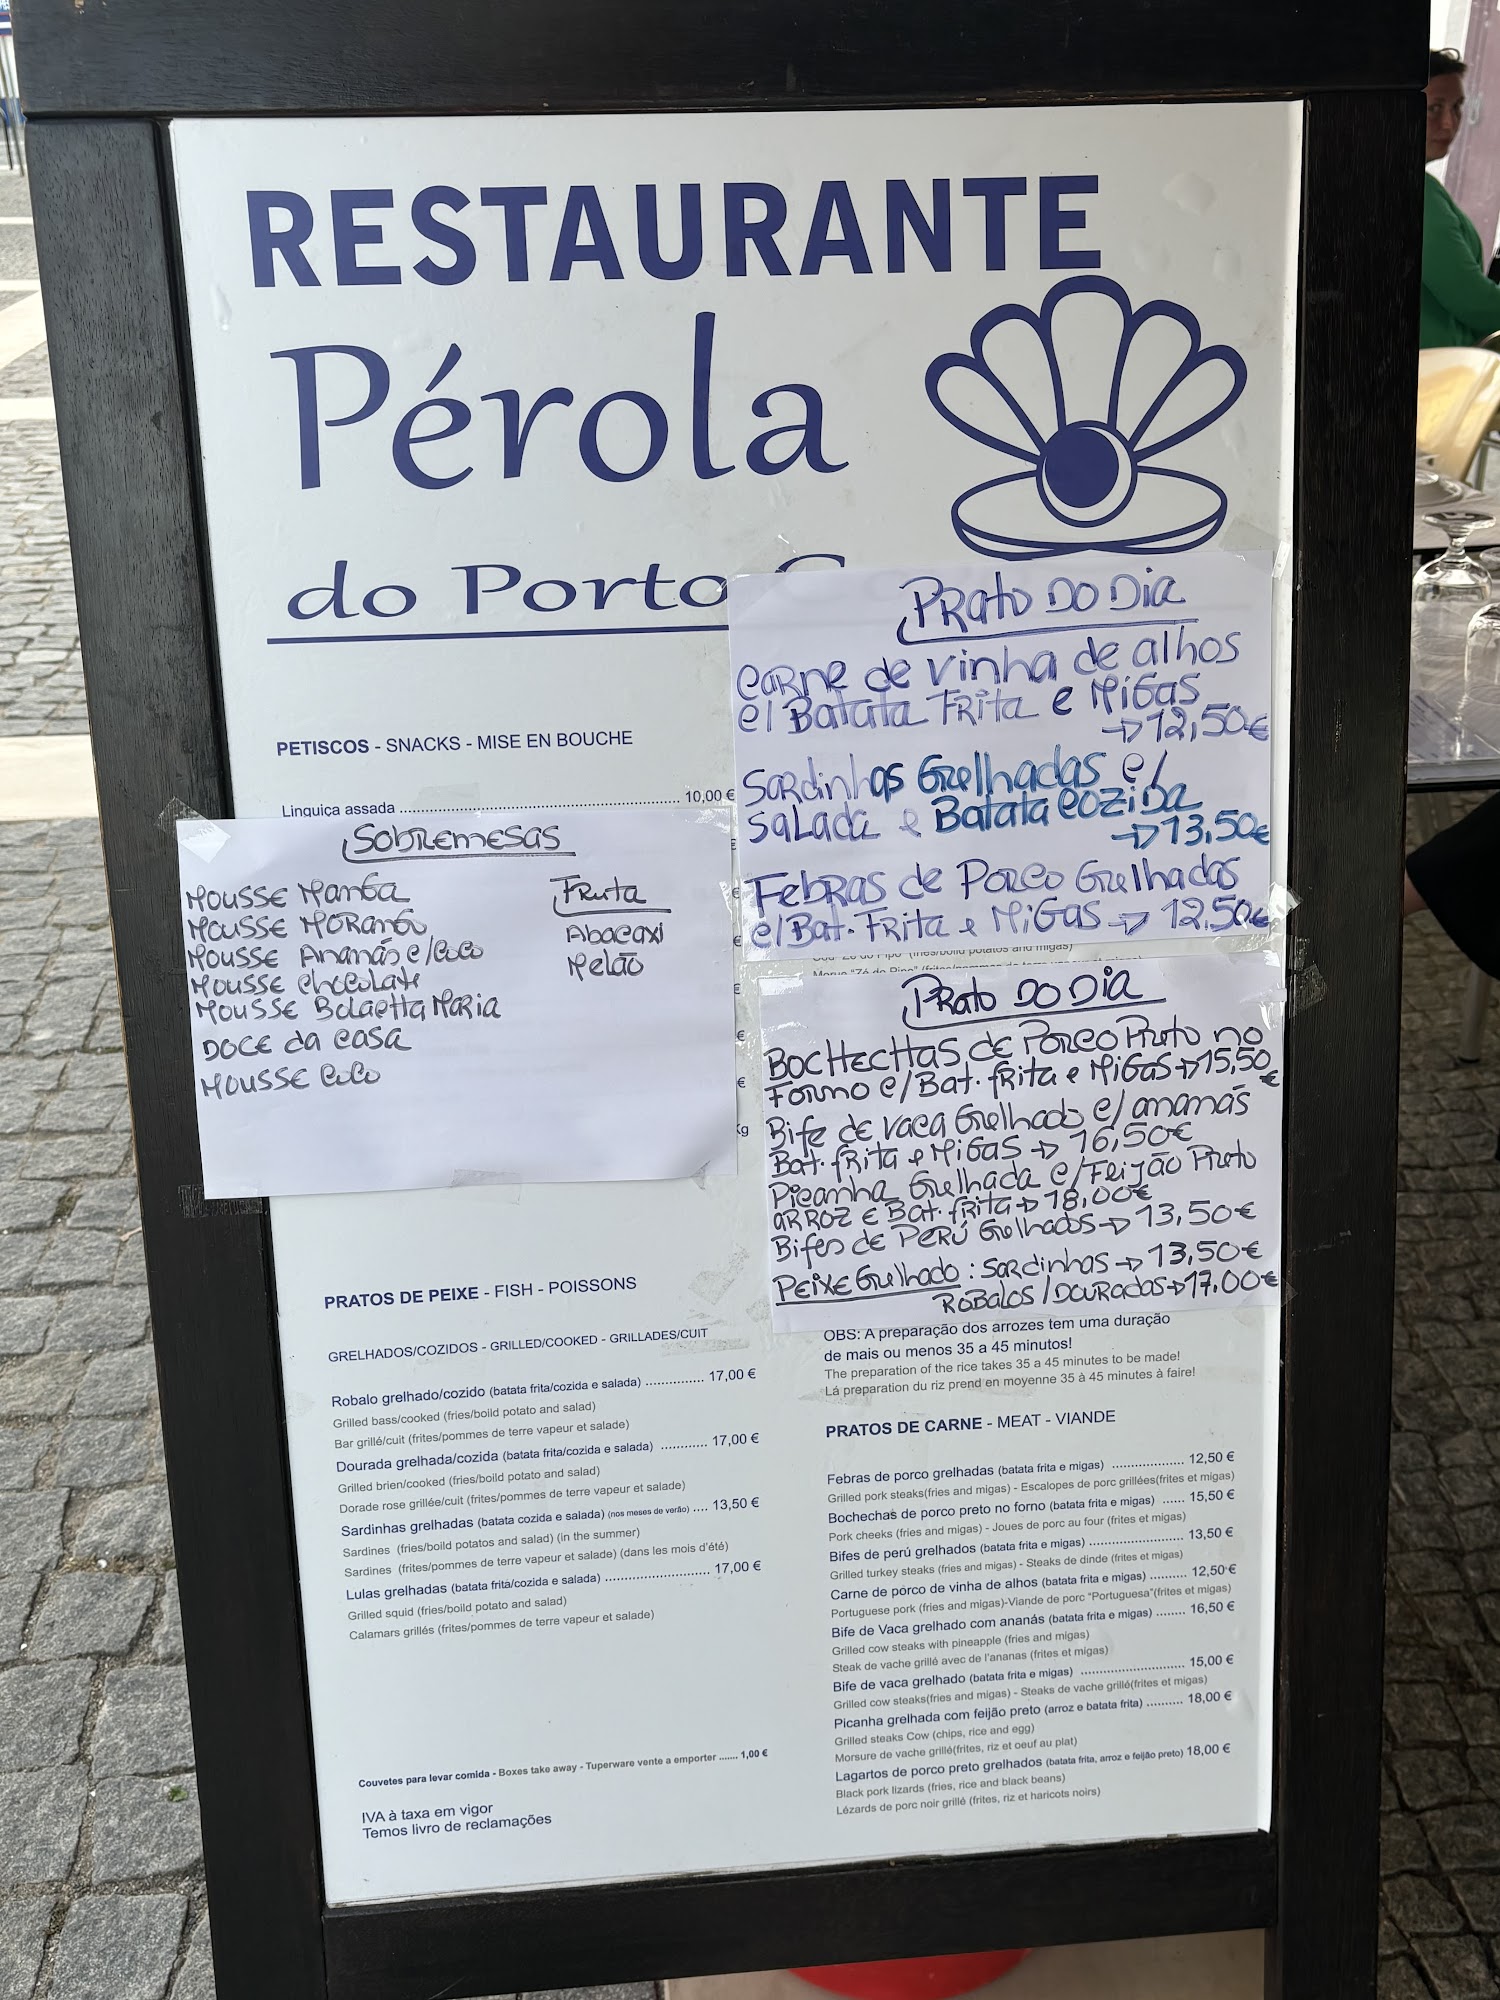 RESTAURANTE
Pérola
do Porto
PETISCOS - SNACKS - MISE EN BOUCHE
Linguiça assada ........ 10,00 €
SOBREMESAS
MOUSSE MANGA
MOUSSE MORANGO
MOUSSE Ananás c/coco
MOUSSE chocolate
MOUSSE BolachA MARIA
DOCE da casa
MOUSSE coco
Fruta
Abacaxi
Melão
€
€
€
€
€
€
€
Kg
PRATO DO DIA
CARNE de vinha de alhos
c/ BATATA FRITA e MIGAS
→ 12,50€
Sardinhas Grelhadas c/
SALADA e BATATA COZIDA
→ 13,50€
FEBRAS de Porco Grelhadas
c/ BAT. FRITA e MIGAS → 12,50€
PRATO DO DIA
BOCHECHAS de Porco Preto no
FORNO c/ BAT. frita e MIGAS → 15,50
€
Bife de vaca Grelhado c/ ananás
BAT. frita e MIGAS → 16,50€
Picanha Grelhada c/ Feijão Preto
ARROZ e BAT. frita → 18,00€
Bifes de PERÚ Grelhados → 13,50€
PEIXE Grelhado : Sardinhas → 13,50€
ROBALOS / DOURADAS → 17,00€
PRATOS DE PEIXE - FISH - POISSONS
GRELHADOS/COZIDOS - GRILLED/COOKED - GRILLADES/CUIT
Robalo grelhado/cozido (batata frita/cozida e salada) ............... 17,00 €
Grilled bass/cooked (fries/boild potato and salad)
Bar grillé/cuit (frites/pommes de terre vapeur et salade)
Dourada grelhada/cozida (batata frita/cozida e salada) ............ 17,00 €
Grilled brien/cooked (fries/boild potato and salad)
Dorade rose grillée/cuit (frites/pommes de terre vapeur et salade)
Sardinhas grelhadas (batata cozida e salada) (nos meses de verão) .... 13,50 €
Sardines (fries/boild potatos and salad) (in the summer)
Sardines (frites/pommes de terre vapeur et salade) (dans les mois d'été)
Lulas grelhadas (batata frita/cozida e salada) ........................... 17,00 €
Grilled squid (fries/boild potato and salad)
Calamars grillés (frites/pommes de terre vapeur et salade)
Couvetes para levar comida - Boxes take away - Tuperware vente a emporter ....... 1,00 €
IVA à taxa em vigor
Temos livro de reclamações
OBS: A preparação dos arrozes tem uma duração
de mais ou menos 35 a 45 minutos!
The preparation of the rice takes 35 a 45 minutes to be made!
Lá preparation du riz prend en moyenne 35 à 45 minutes à faire!
PRATOS DE CARNE - MEAT - VIANDE
Febras de porco grelhadas (batata frita e migas) ................... 12,50 €
Grilled pork steaks(fries and migas) - Escalopes de porc grillées(frites et migas)
Bochechas de porco preto no forno (batata frita e migas) ...... 15,50 €
Pork cheeks (fries and migas) - Joues de porc au four (frites et migas)
Bifes de perú grelhados (batata frita e migas) ........................ 13,50 €
Grilled turkey steaks (fries and migas) - Steaks de dinde (frites et migas)
Carne de porco de vinha de alhos (batata frita e migas) .......... 12,50 €
Portuguese pork (fries and migas)-Viande de porc "Portuguesa"(frites et migas)
Bife de Vaca grelhado com ananás (batata frita e migas) ........ 16,50 €
Grilled cow steaks with pineapple (fries and migas)
Steak de vache grillé avec de l'ananas (frites et migas)
Bife de vaca grelhado (batata frita e migas) ........................... 15,00 €
Grilled cow steaks(fries and migas) - Steaks de vache grillé(frites et migas)
Picanha grelhada com feijão preto (arroz e batata frita) .......... 18,00 €
Grilled steaks Cow (chips, rice and egg)
Morsure de vache grillé(frites, riz et oeuf au plat)
Lagartos de porco preto grelhados (batata frita, arroz e feijão preto) 18,00 €
Black pork lizards (fries, rice and black beans)
Lézards de porc noir grillé (frites, riz et haricots noirs)